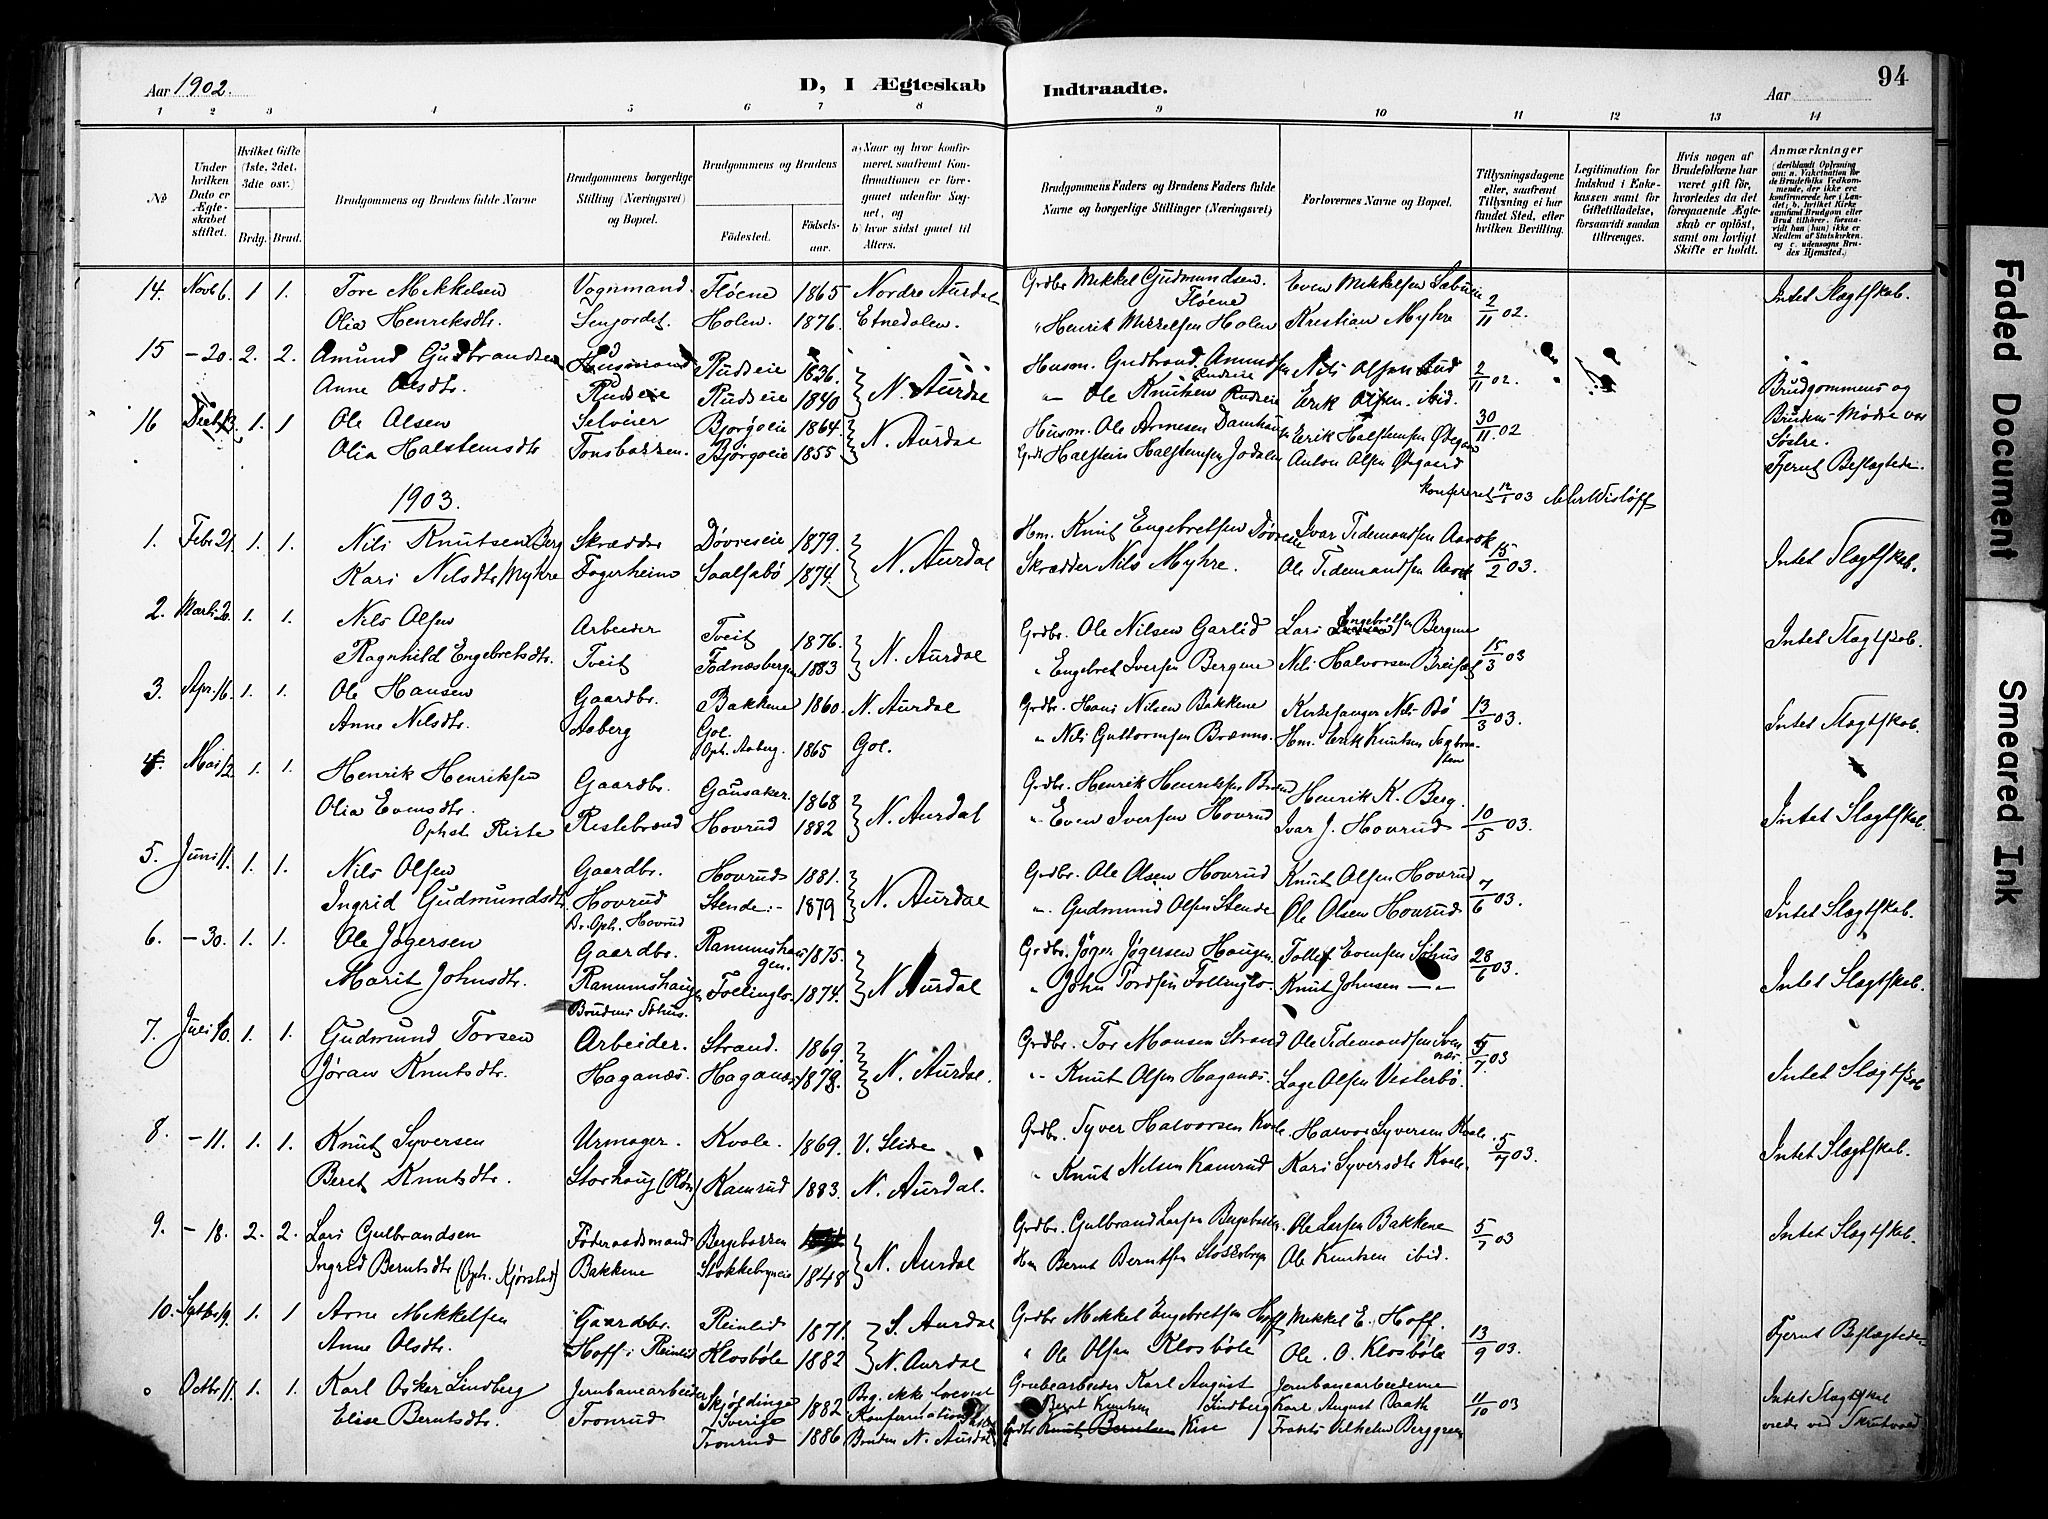 94
Aar 1902.
D, I Ægteskab Indtraadte.
Aar
1 2 3 4 5 6 7 8 9 10 11 12 13 14
No
Under hvilken Dato er Ægteskabet stiftet.
Hvilket Gifte (1ste, 2det, 3die osv.)
Brdg. Brud.
Brudgommens og Brudens fulde Navne
Brudgommens borgerlige Stilling (Næringsvei) og Bopæl.
Brudgommens og Brudens
Fødested. Fødselsaar.
a) Naar og hvor konfirmeret, saafremt Konfirmationen er foregaaet udenfor Sognet, og
b) hvor sidst gaaet til Alters.
Brudgommens Faders og Brudens Faders fulde Navne og borgerlige Stillinger (Næringsvei)
Forlovernes Navne og Bopæl.
Tillysningsdagene eller, saafremt Tillysning ei har fundet Sted, efter hvilken Bevilling.
Legitimation for Indskud i Enkekassen samt for Giftetilladelse, forsaavidt saadan tiltrænges.
Hvis nogen af Brudefolkene har været gift før, hvorledes da det foregaaende Ægteskab er opløst, samt om lovligt Skifte er holdt.
Anmærkninger
14. Novb 6. 1 1. Tore Mikkelsen Vognmand. Fløene 1865 Nordre Aurdal Grdbr Mikkel Gudmundsen Fløene Even Mikkelsen 2/11 02. Intet Slægtskab.
Olia Henriksdtr. Holen. 1876. Etnedalen. " Henrik Mikkelsen Holen Kristian Myhre
15 – 20. 2. 2. Amund Gudbrandsen Husmand Rudseie 1836. N. Aurdal Husm. Gudbrand Amundsen Rudseie Nils Olsen Rud 2/11 02. Brudgommens og
Anne Olsdtr. Rudseie Rudseie 1840 – Ole Knutsen Rudseie Erik Olsen. ibid. Brudens Mødre var
16 Decb 13. 1. 1 Ole Olsen Selveier Bjørgoeie 1864. N. Aurdal Husm. Ole Arnesen Erik Halstensen Øtegaard 30/11. 02 Søstre.
Olia Halstensdtr Tonsbakken. Bjørgoeie 1855 Grdb Halsten Halstensen Jodalen Anton Olsen Øtegaard Fjernt Beslægtede.
konfereret 12/1 03
1903.
1. Febr 21. 1. 1. Nils Knutsen Berg Skrædder Døvreseie 1879. N. Aurdal Hm. Knut Engebretsen Døvreseie Ivar Tidemandsen 15/2 03. Intet Slægtskab.
Kari Nilsdtr Myhre Fagerheim 1874. Skrædder Nils Myhre. Ole Tidemandsen
2. Marts 20. 1. 1. Nils Olsen Arbeider Tveit 1876. N. Aurdal Grdbr. Ole Nilsen Garlid Lars Engebretsen Bergene 15/3 03 Intet Slagtskab.
Ragnhild Engebretsdtr. Tveit Fodnæsbergen 1883 " Engebret Iversen Bergene Nils Halvorsen
3. Apr. 16. 1. 1. Ole Hansen Gaardbr. Bakkene 1860. N. Aurdal Grdbr. Hans Nilsen Bakkene Kirkesanger Nils Bø 13/3 03. Intet Slagtskab.
Anne Nilsdtr. Aaberg Gol. Oph. Aaberg. 1865 Gol. " Nils Guttormsen Hm. Erik Knutsen
4. Mai 12 1. 1. Henrik Henriksen Gaardbr. Gausaker. 1868 N. Aurdal Grdbr. Henrik Henriksen Henrik K. Berg. 10/5 03. Intet Slægtskab.
Olia Evensdtr. Ristebrænd Hovrud 1882 " Even Iversen Hovrud Ivar J. Hovrud
5. Juni 11. 1. 1. Nils Olsen Gaardbr. Hovrud 1881. N. Aurdal Grdbr. Ole Olsen Hovrud Knut Olsen Hovrud 7/6 03. Intet Slægtskab.
Ingrid Gudmundsdtr. Hovrud Stende 1879 " Gudmund Olsen Stende Ole Olsen Hovrud
Br. Oph. Hovrud
6. – 30. 1. 1. Ole Jøgersen Gaardbr. Ranumshaugen. 1875. N. Aurdal Grdbr. Jøger Jøgersen Haugen Tollef Evensen Søhus 28/6 03. Intet Slægtskab.
Marit Johnsdtr. Ranumshaugen Follinglo. 1874. " John Tordsen Follinglo. Knut Johnsen – " –
Brudens Søhus.
7. Juli 10. 1. 1. Gudmund Torsen Arbeider. Strand. 1869. N. Aurdal. Grdbr. Tor Monsen Strand Ole Tidemandsen 5/7 03 Intet Slægtskab
Jøran Knutsdtr. Haganæs. Haganæs 1878. " Knut Olsen Haganæs. Lage Olsen Vesterbø.
8. – 11. 1. 1. Knut Syversen Urmager. Kvale. 1869. V. Slidre Grdbr. Syver Halvorsen Kvale Halvor Syversen Kvale. 5/7 03. Intet Slægtskab.
Beret Knutsdtr. Storhaug Kamrud 1883. N. Aurdal. " Knut Nilsen Kamrud Kari Syversdtr Kvale
9. – 18. 2. 2. Lars Gulbrandsen Føderaadsmand Bergebakken N. Aurdal Grdbr. Gulbrand Larsen Ole Larsen Bakkene 5/7 03 Intet Slægtskab.
Ingrid Berntsdtr (Oph. Kjørstad) Bakkene 1848 Hm Bernt Berntsen Ole Knutsen ibid.
10. Septbr 19. 1. 1 Arne Mikkelsen Gaardbr. Reinlid 1871. S. Aurdal Grdbr Mikkel Engebretsen Hoff Mikkel E. Hoff. 13/9 03. Fjernt Beslægtede
Anne Olsdtr. Hoff i Reinlid Klosbøle 1882 N. Aurdal " Ole Olsen Klosbøle Ole. O. Klosbøle
Octbr 11. 1. 1. Karl Oskar Lindberg Jernbanearbeider Skjøldinge Sverige 1882 Grubearbeider Karl August Lindberg Jernbanearbeiderne 11/10 03 Intet Slagtskab
Elise Berntsdtr. Tronrud Tronrud 1886 Bruden N. Aurdal Bernt Knutsen Kise Karl August Daath
Frants Vilhelm Berggren
Faded Document
Smeared Ink